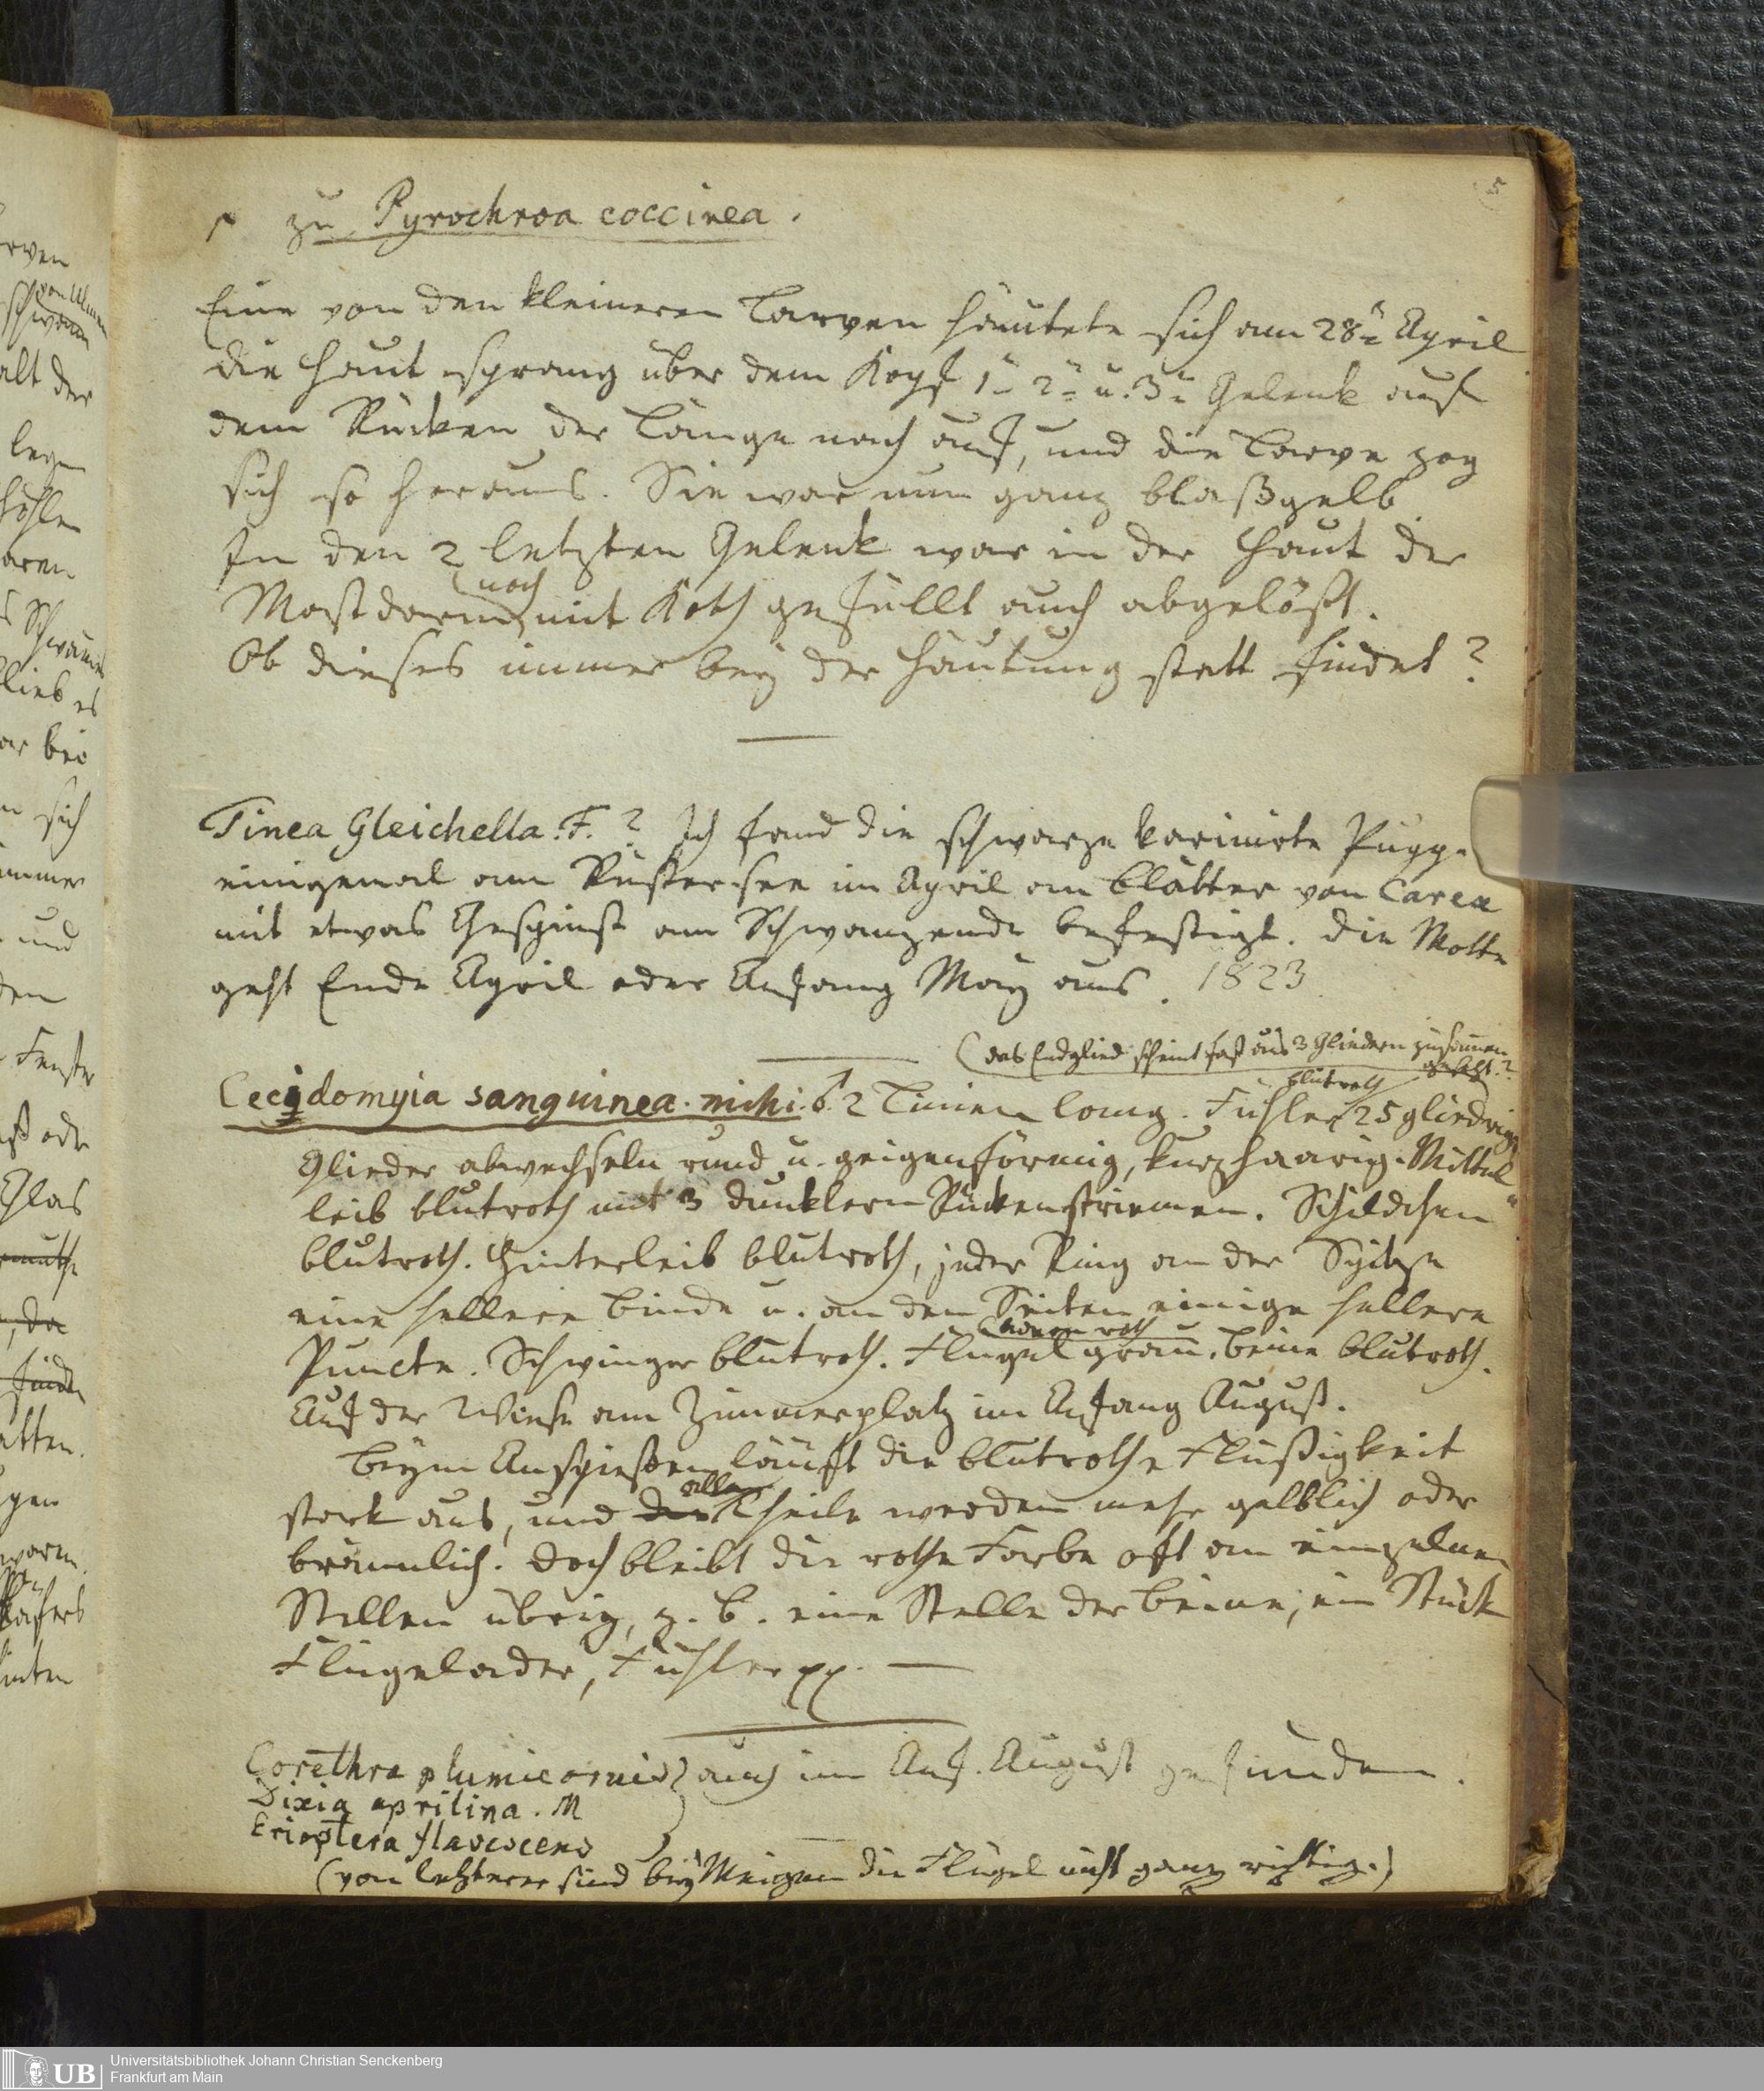 5
zu Pyrochroa coccinea.
Eine von den kleineren Larven häutete sich am 28n April
die Haut sprang über dem Kopf 1n 2n u. 3n Gelenk auf
dem Rücken der Länge nach auf, und die Larve zog
sich so heraus. Sie war nun ganz blaßgelb
In den 2 letzten Gelenk war in der Haut der
Mastdarm noch mit Koth gefüllt auch abgelößt.
Ob dieses immer bey der Häutung statt findet?
Tinea Gleichella. F.? Ich fand die schwarze Puppe
einigemal am im April an Blätter von Carex
mit etwas Gespinst am Schwanzende befestigt. Die Motte
geht Ende April oder Anfang May aus. 1823
(das Endglied scheint fast aus 3 Gliedern zusammen
gesetzt?
blutroth
Cecidomyia sanguinea. mihi. 2 Linien lang. Fühler 25 gliedrig
Glieder abwechseln rund u. geigenförmig, kurzhaarig. Mittel
leib blutroth mit 3 dunklern Rückenstriemen. Schildchen
blutroth. Hinterleib blutroth, jeder Ring an der Spitze
eine hellere Binde u. an den Seiten einige hellere
Adern roth
Puncte. Schwinger blutroth. Flügel grau. Beine blutroth.
Auf der Wiese am Zimmerplatz im Anfang August.
Beym Anspießen läuft die blutrothe Flüßigkeit
stark aus, und die alle Theile werden mehr gelblich oder
bräunlich. Doch bleibt die rothe Farbe oft an einzelnen
Stellen übrig, z. B. eine Stelle der Beine, ein Stück
Flügelader, Fühler pp.
Corethra plumicornis } auch im Anf. August gefunden.
Dixia aprilina. M
Erioptera flavescens
(von letzterer sind bey Meigen die Flügel nicht ganz richtig.)
UB Universitätsbibliothek Johann Christian Senckenberg
Frankfurt am Main